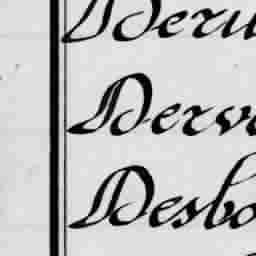 Deru
Derv
Desbo